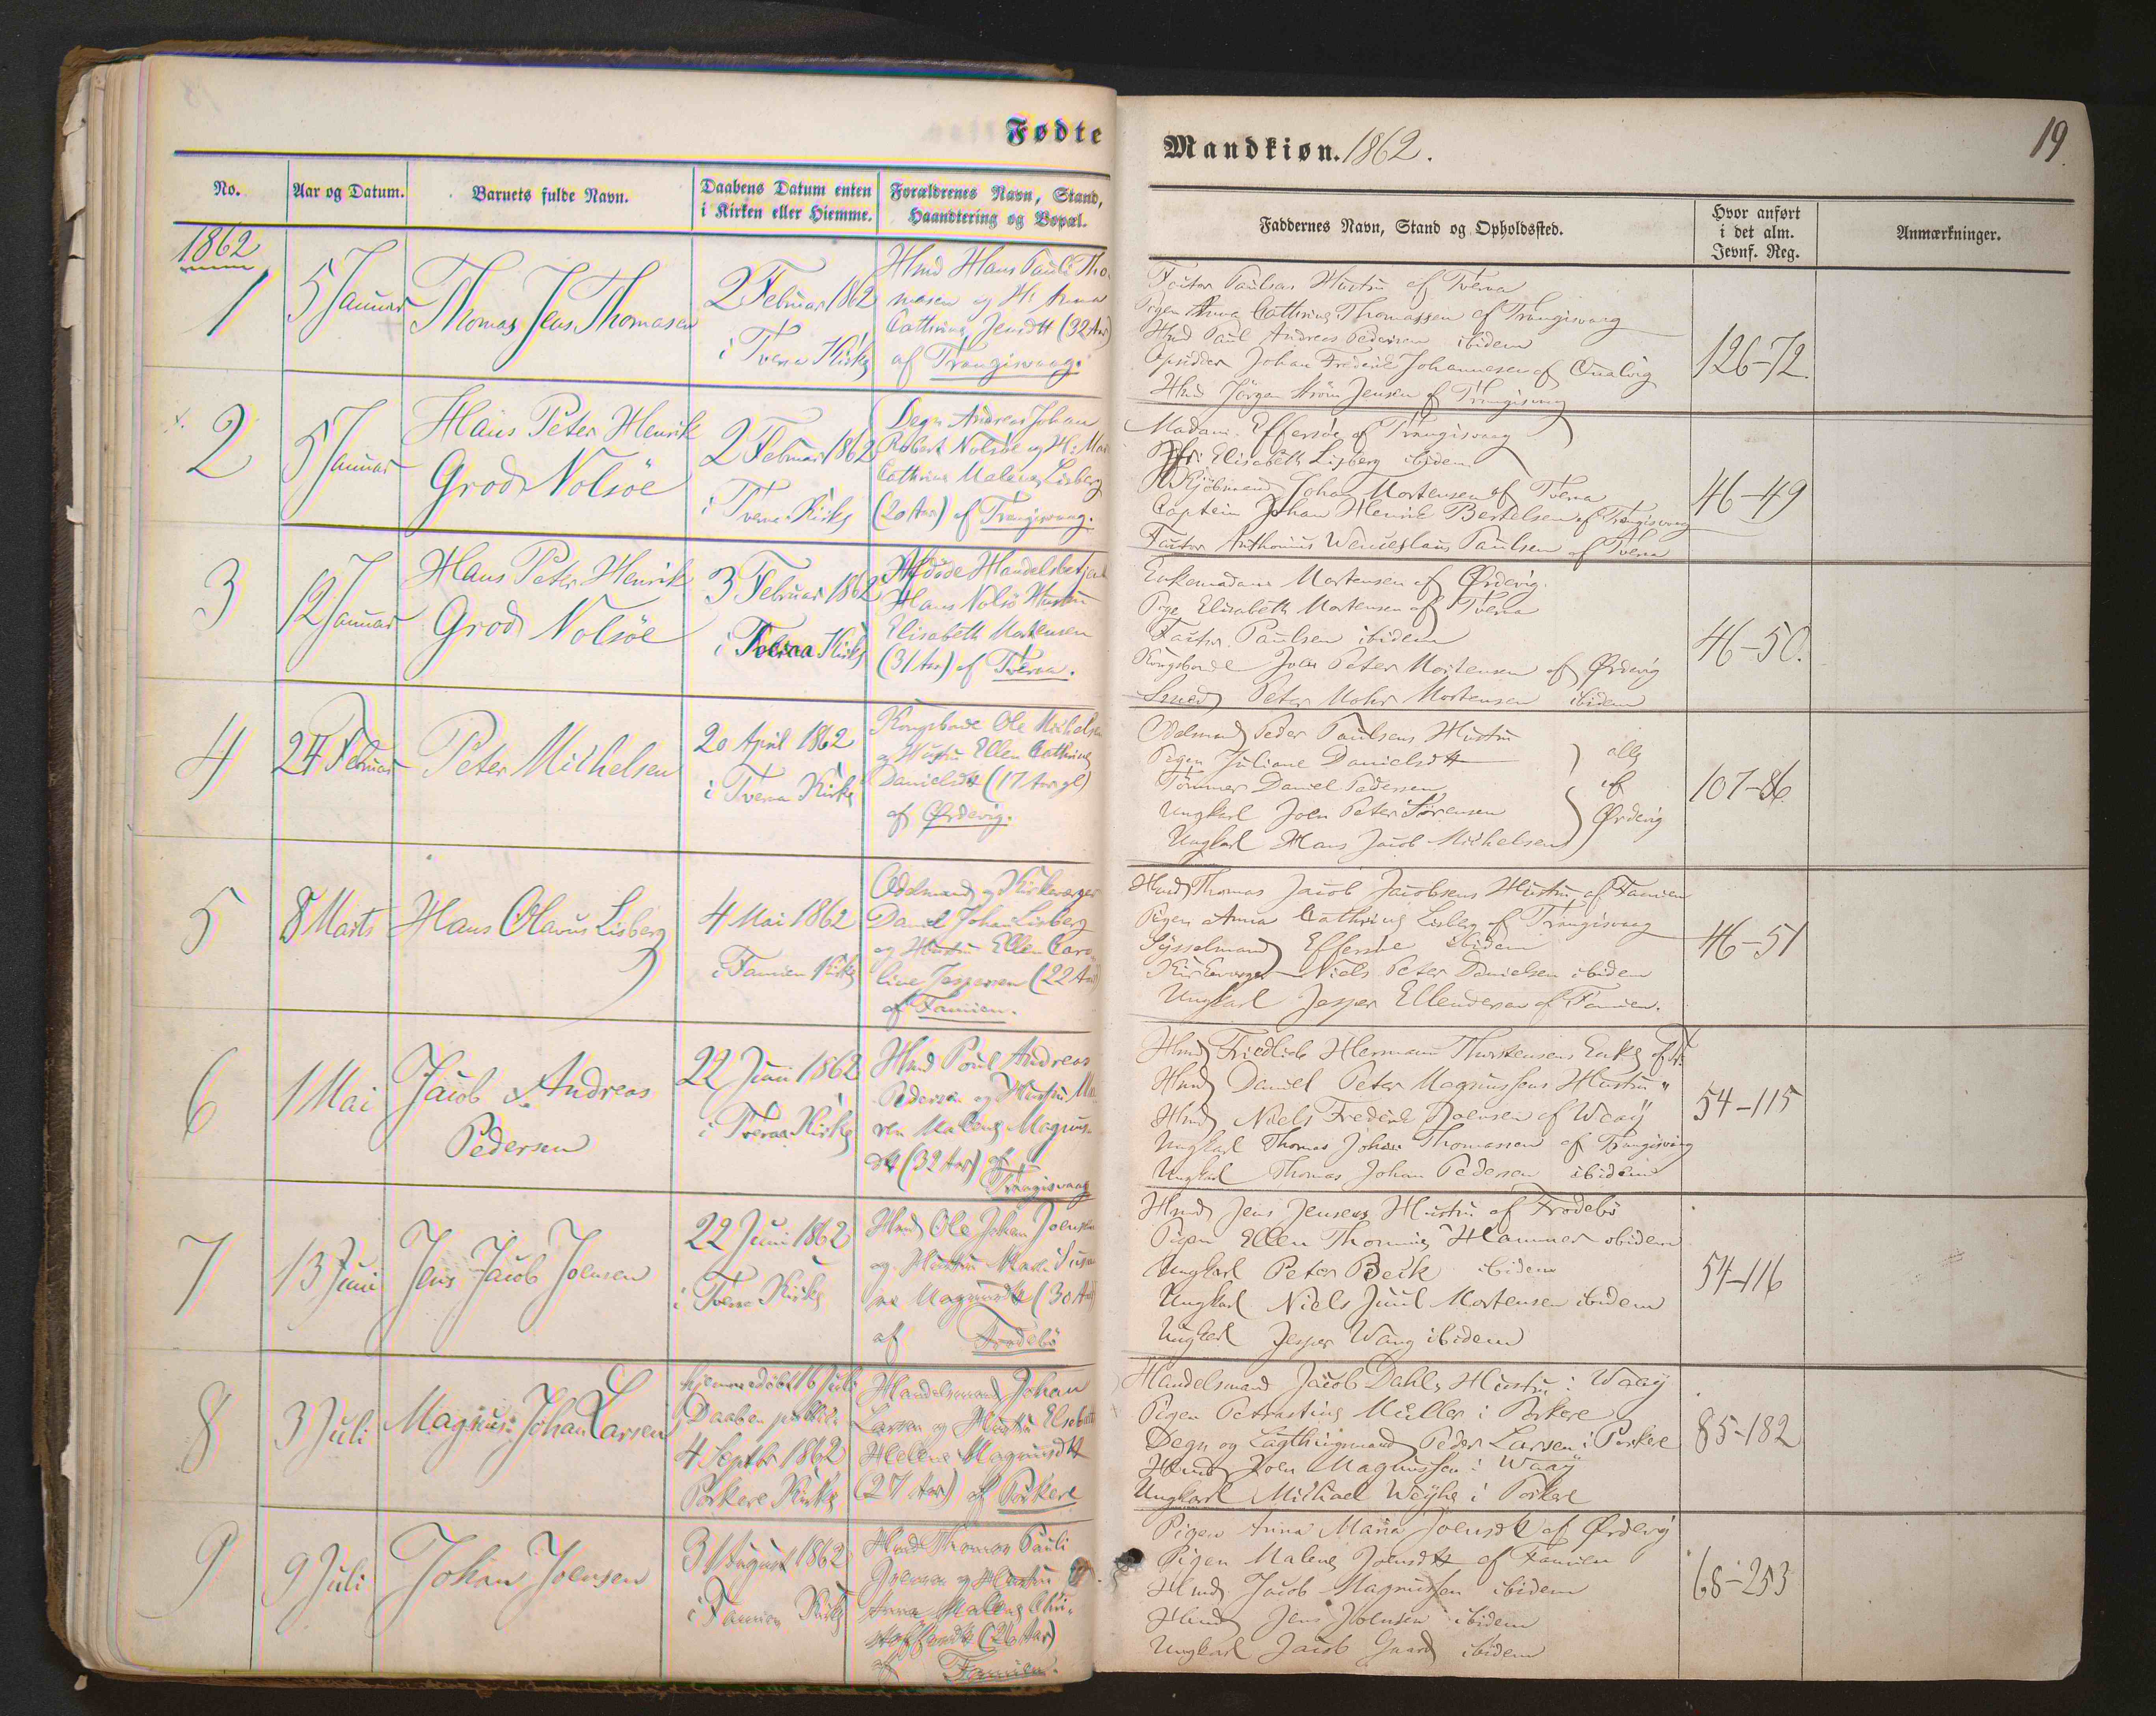 Fødte
No.
Aar og Datum.
Barnets fulde Navn.
Daabens Datum enten
i Kirken eller Hiemme.
Forældrenes Navn, Stand,
Haandtering og Bopæl.
1862
1
5 Januar
Thomas Jens Thomasen
2 Februar 1862
i Tveraa Kirke
Hmd Hans Pauli Tho-
masen og H: Anna
Cathrine Jensdtt (32 Aar)
af Trangisvaag.
2
5 Januar
Hans Peter Henrik
Groth Nolsöe
2 Februar 1862
i Tveraa Kirke
Degn Andreas Johan
Robert Nolsöe og H:
Cathrine Malene Lisberg
(20 Aar) af Trangisvaag.
3
12 Januar
Hans Peter Henrik
Groth Nolsöe
3 Februar 1862
i Tveraa Kirke
Afdøde Handelsbetjent
Hans Nolsö Hustru
Elisabeth Mortensen
(31 Aar) af Tveraa.
4
24 Februar
Peter Michelsen
20 April 1862
i Tveraa Kirke
Kongsbonde Ole Michelsen
og Hustru Ellen Cathrine
Danielsdtt (17 Aar gl)
af Ørdevig.
5
8 Marts
Hans Olavus Lisberg
4 Mai 1862
i Famien Kirke
Odelsmand og Kirkeværger
Daniel Johan Lisberg
og Hustru Ellen Caro-
line Jespersen (22 Aar)
af Famien.
6
1 Mai
Jacob Andreas
Pedersen
22 Juni 1862
i Tveraa Kirke
Hmd Poul Andreas
Pedersen og Hustru Ma-
ren Malene Magnus-
dtt (32 Aar) af
Trangisvaag
7
13 Juni
Jens Jacob Joensen
22 Juni 1862
i Tveraa Kirke
Hmd Ole Johan Joensen
og Hustru Maren Susan-
ne Magnusdtt (30 Aar)
af Frodebö
8
3 Juli
Magnus Johan Larsen
hjemmedøbt 16 Juli
Daaben public:
4 Septbr 1862
Porkere Kirke
Handelsmand Johan
Larsen og Hustru Elsebeth
Helene Magnusdtt
(27 Aar) af Porkere
9
9 Juli
Johan Joensen
3 August 1862
i Famien Kirke
Hmd Thomas Pauli
Joensen og Hustru
Anna Malene Chri-
stoffersdtt (26 Aar)
af Famien.
Mandkiøn. 1862.
19.
Faddernes Navn, Stand og Opholdssted.
Hvor anført
i det alm.
Jevnf. Reg.
Anmærkninger.
Factor Paulsens Hustru af Tveraa
Pigen Anna Cathrine Thomassen af Trangisvaag
Hmd Paul Andreas Pedersen ibidem
Opsidder Johan Frederik Johannesen af Qualvig
Hmd Jörgen Ström Jensen af Trangisvaag
126-72.
Madam Effersöe af Trangisvaag
Jfr: Elisabeth Lisberg ibidem
Kjöbmand Johan Mortensen af Tveraa
Captein Johan Henrik Bertelsen af Trangisvaag
Factor Anthonius Wenceslaus Paulsen af Tveraa
46-49
Enkemadame Mortensen af Ørdevig.
Pige Elisabeth Mortensen af Tveraa
Factor Paulsen ibidem
Kongsbonde Joen Peter Mortensen af Ørdevig
Smed Peter Mohr Mortensen ibidem
46-50.
Odelsmand Peder Paulsens Hustru
Pigen Juliane Danielsdtt
Tömmer Daniel Pedersen
Ungkarl Joen Peter Sörensen
Ungkarl Hans Jacob Michelsen
alle
af
Ørdevig
107-86
Hmd Thomas Jacob Jacobsens Hustru af Famien
Pigen Anna Cathrine Lisberg af Trangisvaag
Sysselmand Effersöe ibidem
Kirkeværger Niels Peter Danielsen ibidem
Ungkarl Jesper Ellendersen af Famien.
46-51
Hmd Friedlieb Hermann Thorstensens Enke af Tr.
Hmd Daniel Peter Magnussens Hustru "
Hmd Niels Frederik Joensen af Waaÿ
Ungkarl Thomas Johan Thomassen af Trangisvaag
Ungkarl Thomas Johan Pedersen ibidem
54-115
Hmd Jens Jensens Hustru af Frodebö
Pigen Ellen Thomine Hammer ibidem
Ungkarl Peter Beck ibidem
Ungkarl Niels Juul Mortensen ibidem
Ungkarl Jesper Wang ibidem
54-116
Handelsmand Jacob Dahls Hustru i Waaÿ
Pigen Petrastine Müller i Porkere
Degn og Lagthingsmand Peder Larsen i Porkere
Hmd Joen Magnussen i Waaÿ
Ungkarl Michael Weyhe i Porkere
85-182
Pigen Anna Maria Joensdtt af Ørdevig
Pigen Malene Joensdtt af Famien
Hmd Jacob Magnussen ibidem
Hmd Jens Joensen ibidem
Ungkarl Jacob Gaard ibidem
68-253